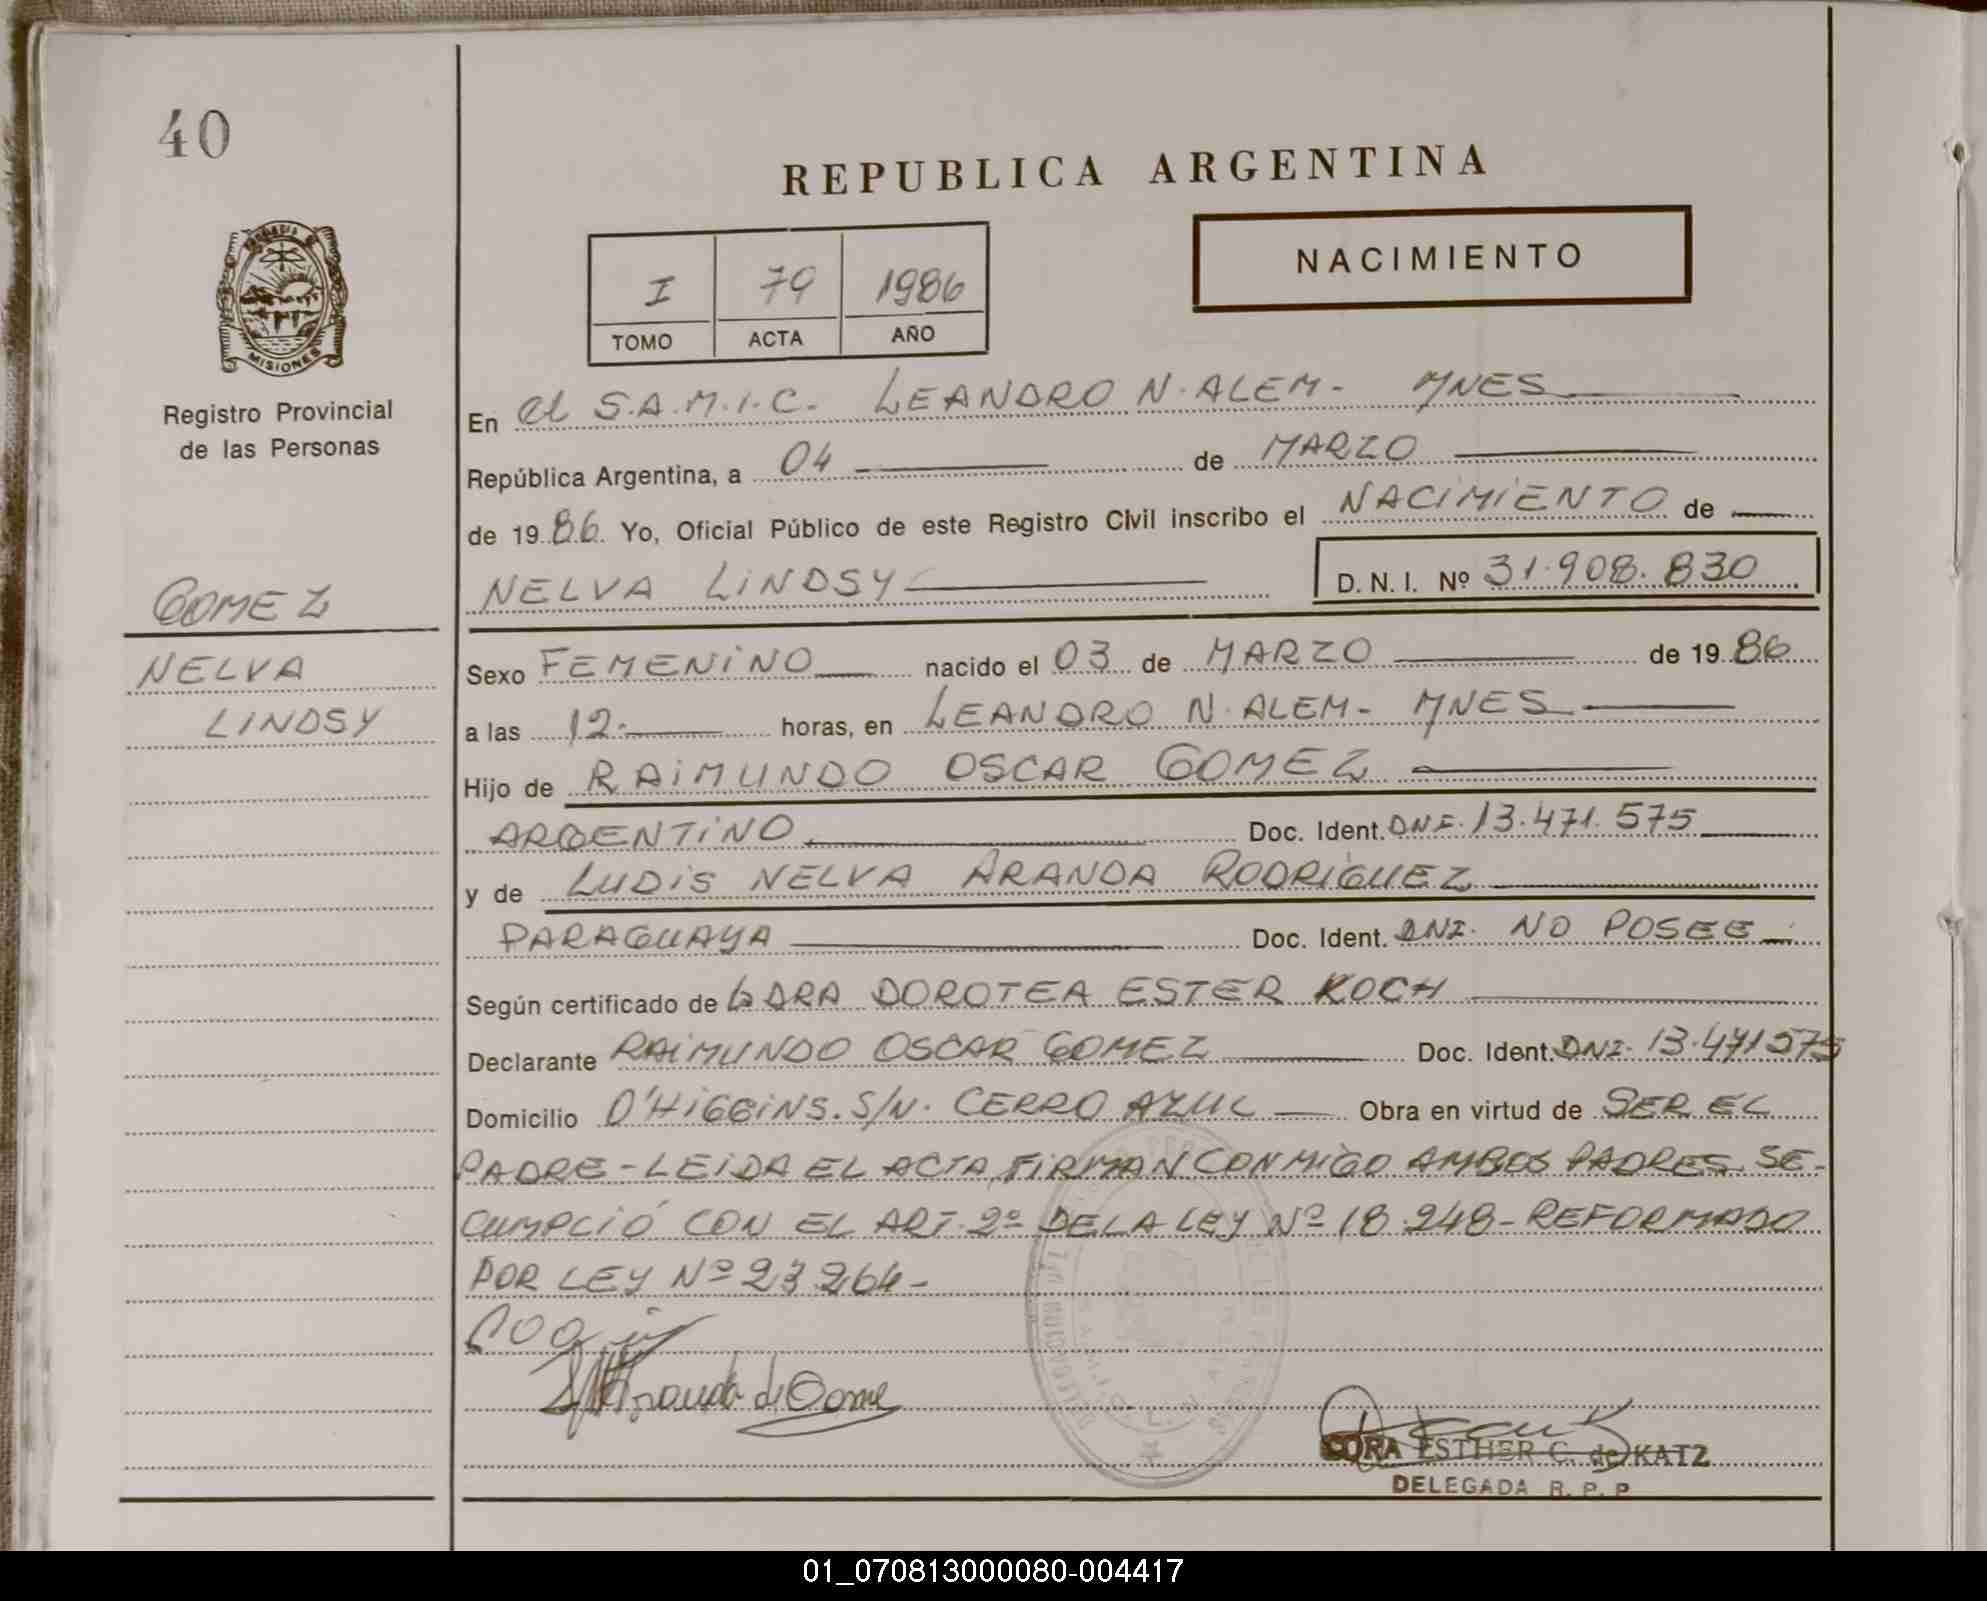 40
REPUBLICA ARGENTINA
NACIMIENTO
I 79 1986
TOMO ACTA AÑO
MISIONES
Registro Provincial
de las Personas
GOMEZ
NELVA
LINDSY
En el S.A.M.I.C. LEANDRO N. ALEM - MNES
República Argentina, a 04 de MARZO
de 1986 Yo, Oficial Público de este Registro Civil inscribo el NACIMIENTO de
NELVA LINDSY D.N.I. Nº 31.908.830
Sexo FEMENINO nacido el 03 de MARZO de 1986
a las 12. horas, en LEANDRO N. ALEM - MNES
Hijo de RAIMUNDO OSCAR GOMEZ
ARGENTINO Doc. Ident. DNI. 13.471.575
y de LUDIS NELVA ARANDA RODRIGUEZ
PARAGUAYA Doc. Ident. DNI. NO POSEE
Según certificado de DOROTEA ESTER KOCH
Declarante RAIMUNDO OSCAR GOMEZ Doc. Ident. DNI. 13.471575
Domicilio O'HIGGINS. S/N. CERRO AZUL Obra en virtud de SER EL
PADRE - LEIDA EL ACTA, FIRMAN CONMIGO AMBOS PADRES. SE
CUMPLIÓ CON EL ART. 2º DE LA LEY Nº 18.248 - REFORMADO
POR LEY Nº 23.264 -
Aranda de Gome
CORA ESTHER C. de KATZ
DELEGADA R. P. P
01_070813000080-004417